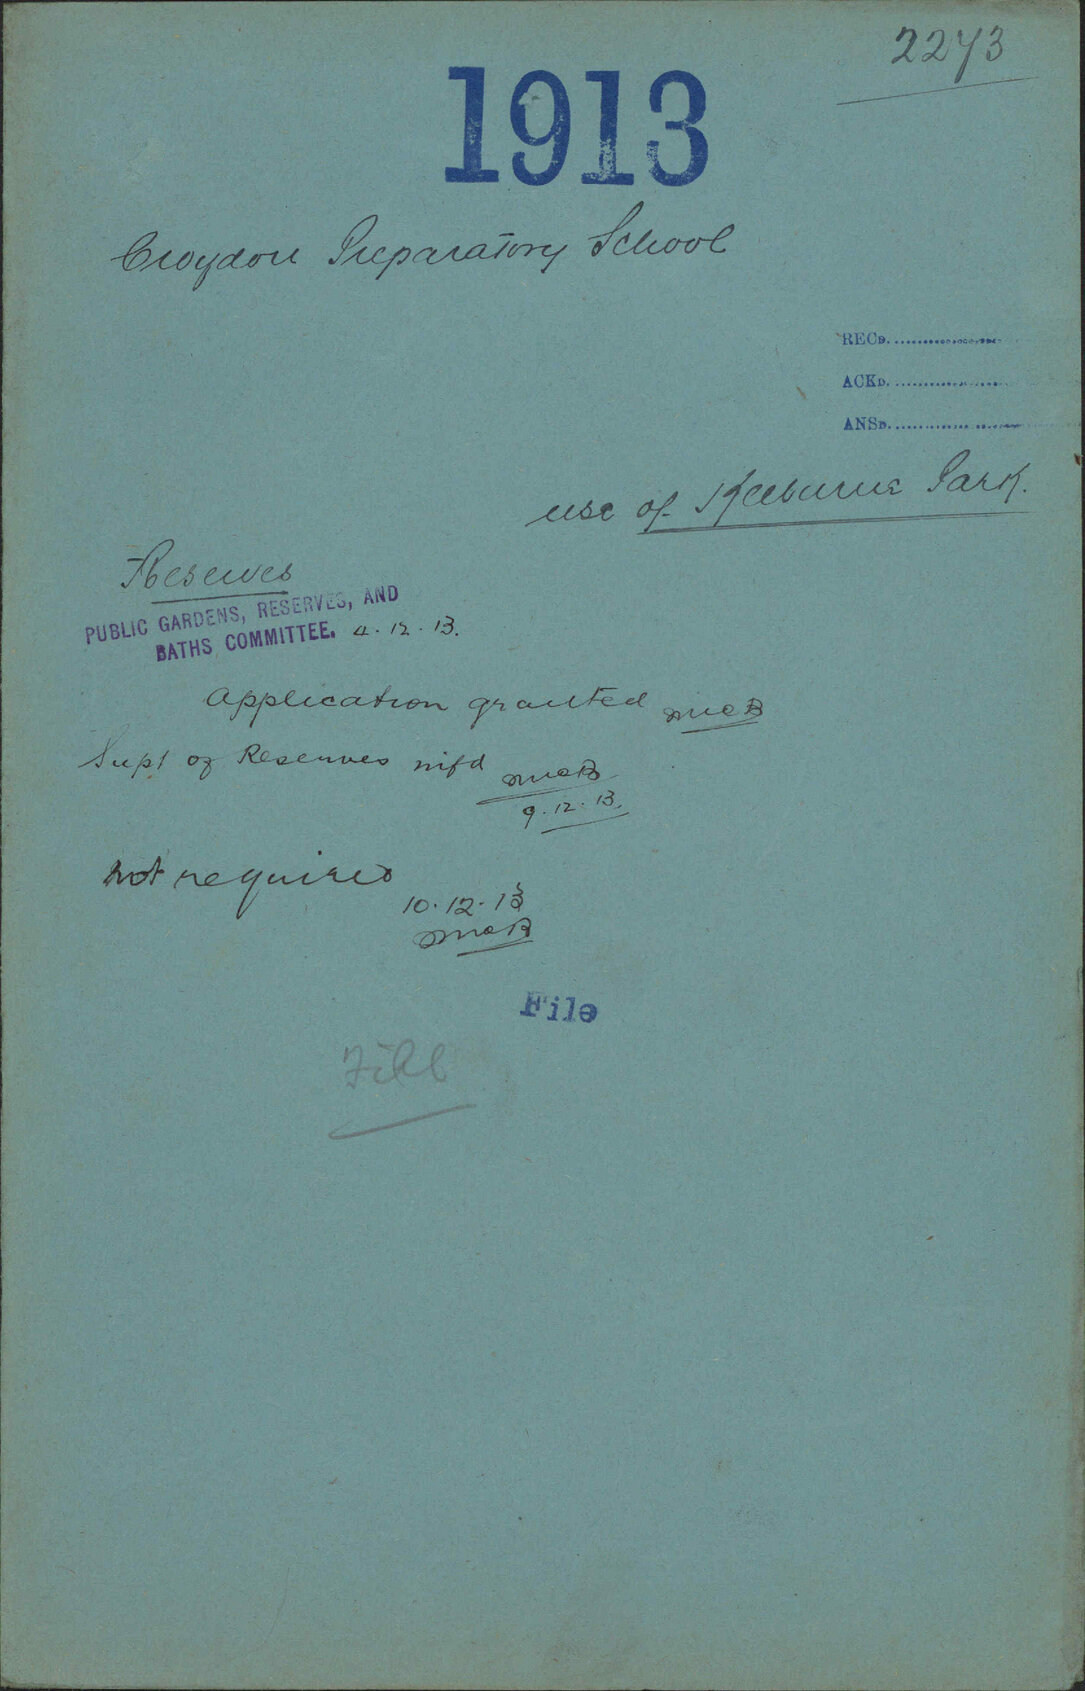 2273
1913
Croydon Preparatory School
RECD.
ACKD.
ANSD.
use of Kelburne Park.
Reserves
PUBLIC GARDENS, RESERVES, AND
BATHS COMMITTEE. 4.12.13.
Application granted
Supt of Reserves nifd
9.12.13.
Not required
10.12.13
File
File